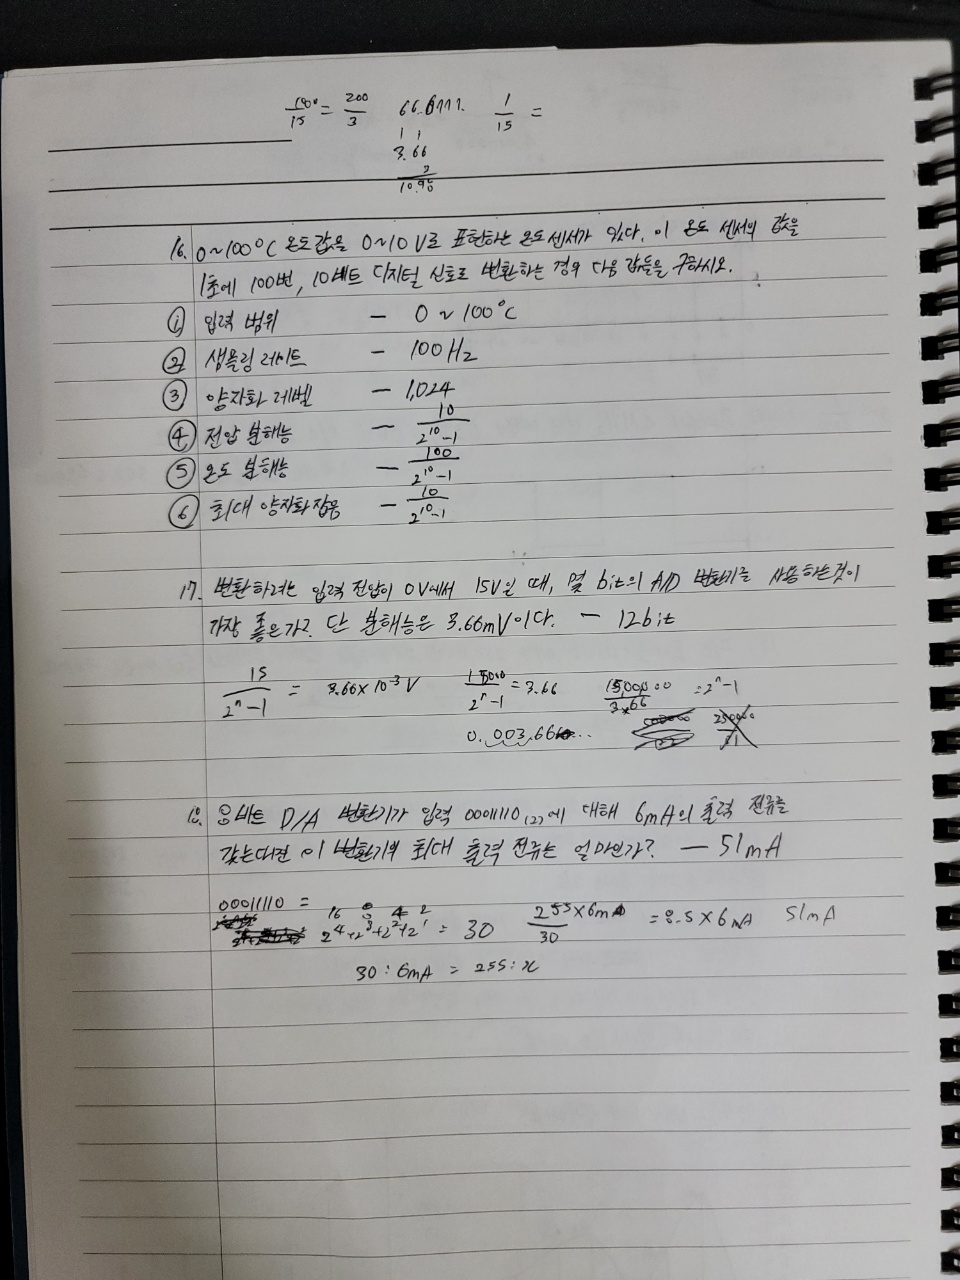 1000/15 = 200/3 66.6777. 1/15 =
1 1
3.66
3
10.98
16. 0~100°C 온도값을 0~10V로 표현하는 온도센서가 있다. 이 온도 센서의 값을
1초에 100번, 10비트 디지털 신호로 변환하는 경우 다음 값들을 구하시오.
① 입력 범위 - 0~100°C
② 샘플링 레이트 - 100Hz
③ 양자화 레벨 - 1,024
④ 전압 분해능 - 10/2^10-1
⑤ 온도 분해능 - 100/2^10-1
⑥ 최대 양자화잡음 - 10/2^10-1
17. 변환하려는 입력 전압이 0V에서 15V일 때, 몇 bit의 A/D 변환기를 사용하는것이
가장 좋은가? 단 분해능은 3.66mV이다. - 12bit
15/2^n-1 = 3.66×10^-3 V 15000/2^n-1 = 3.66 15,000,00/3.66 = 2^n-1
0.003.66...
18. 8비트 D/A 변환기가 입력 00011110(2)에 대해 6mA의 출력 전류를
갖는다면 이 변환기의 최대 출력 전류는 얼마인가? - 51mA
00011110 =
16 8 4 2
2^4+2^3+2^2+2^1 = 30 255×6mA/30 = 8.5×6mA 51mA
30:6mA = 255:x